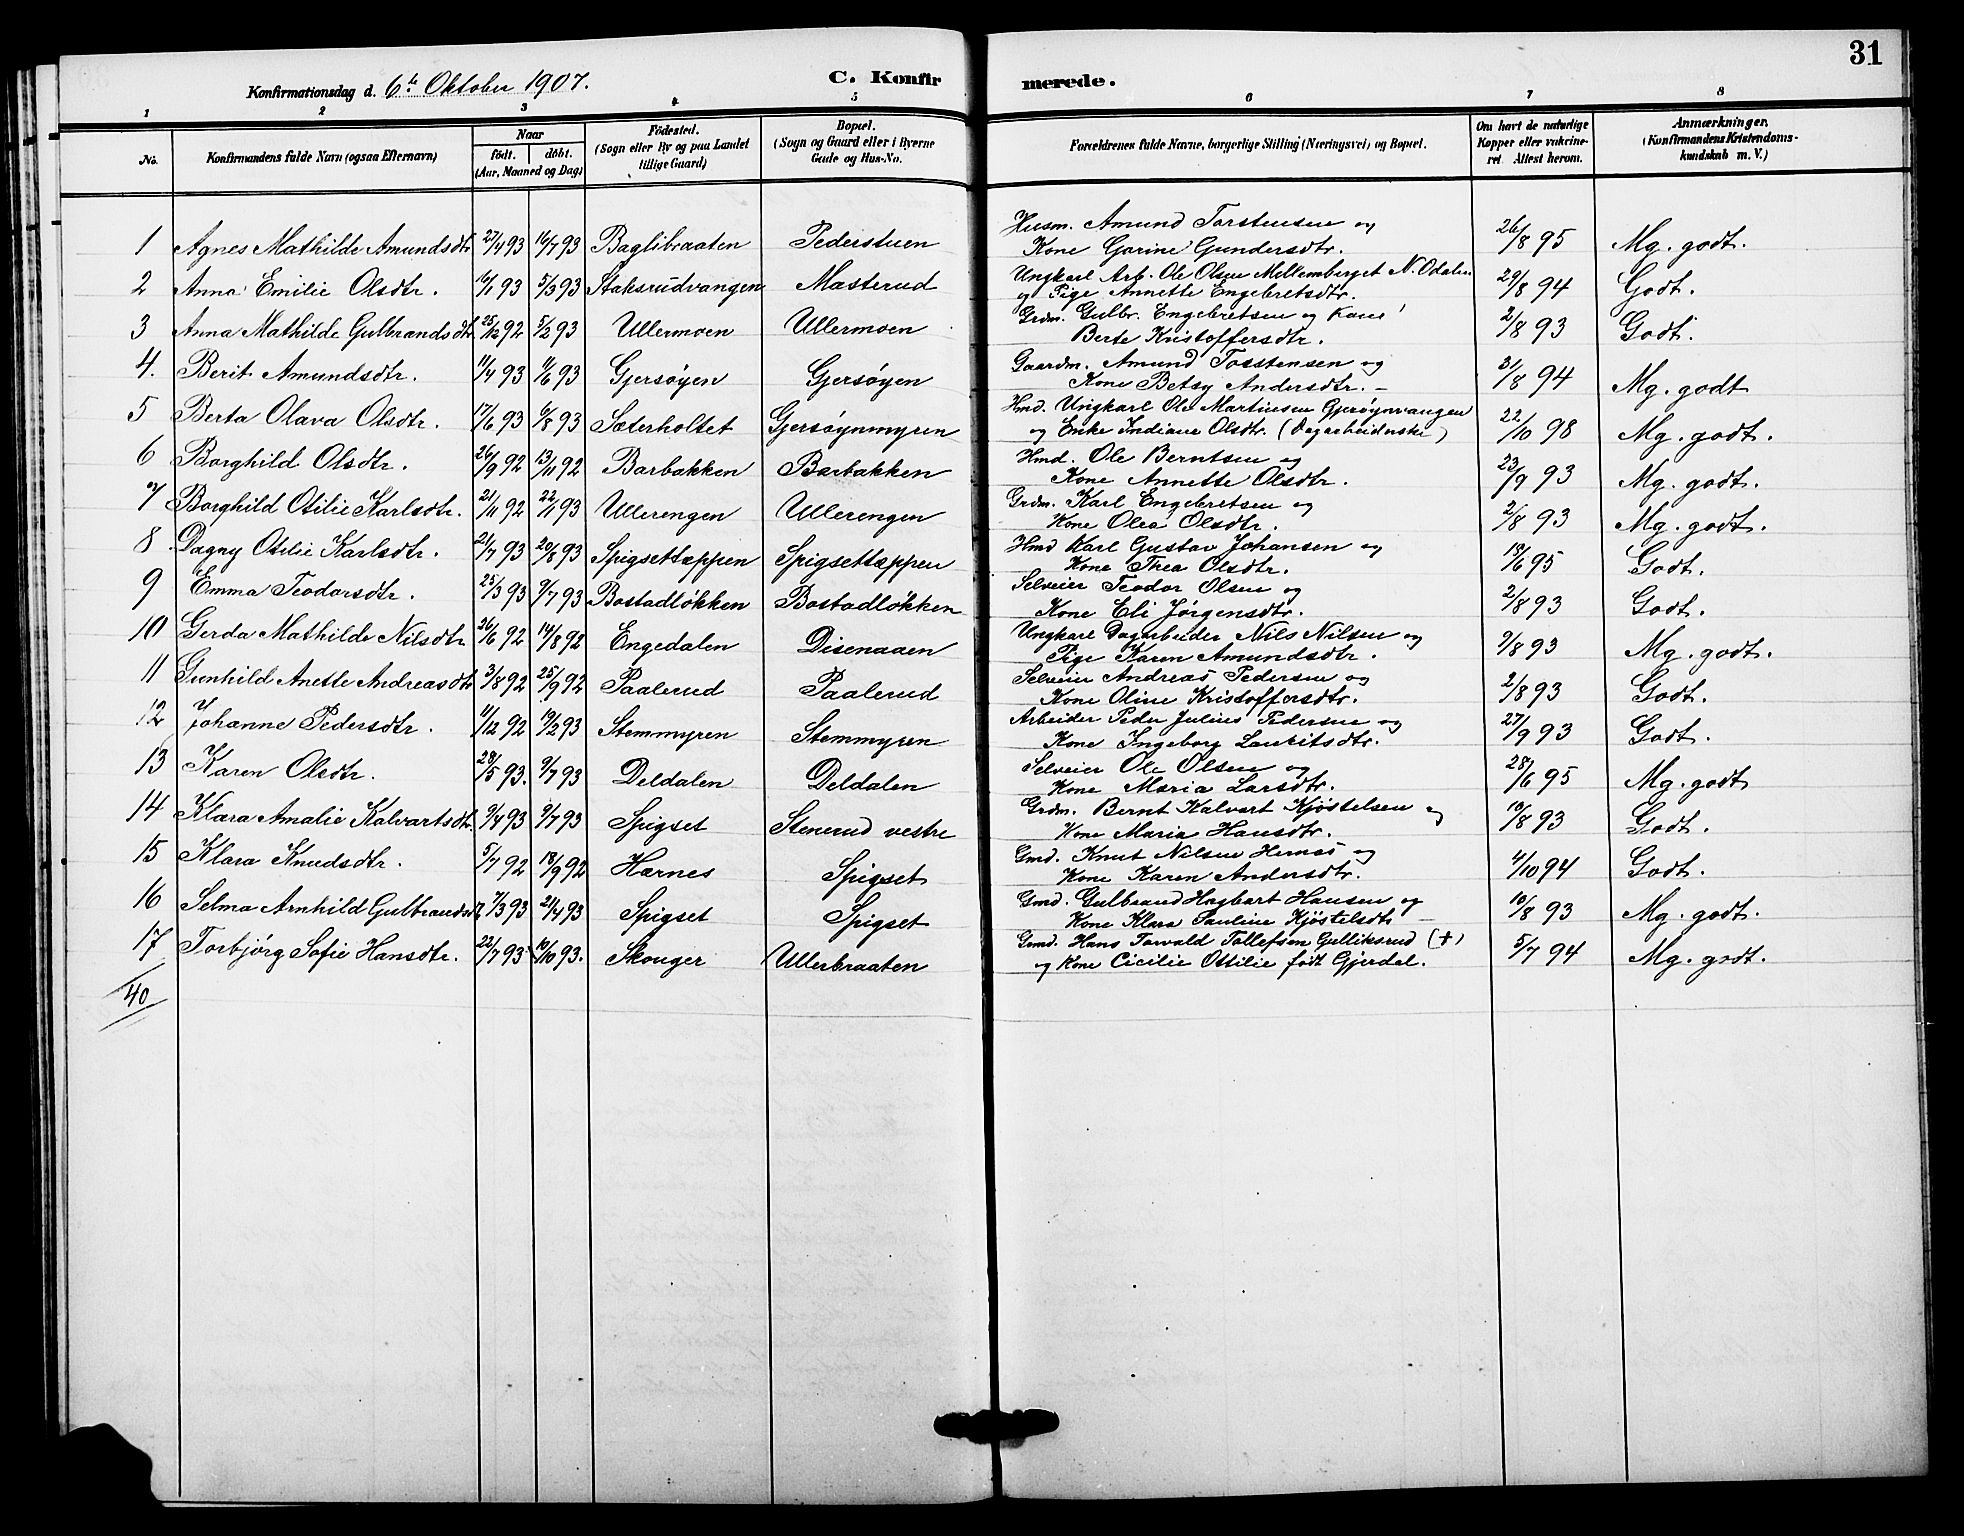 31
Konfirmationsdag d. 6te Oktober 1907.
C. Konfirmerede.
1 2 3 4 5 6 7 8
No. | Konfirmandens fulde Navn (ogsaa Efternavn) | Naar født. døbt. (Aar, Maaned og Dag) | Fødested. (Sogn eller By og paa Landet tillige Gaard) | Bopæl. (Sogn og Gaard eller i Byerne Gade og Hus-No. | Forældrenes fulde Navne, borgerlige Stilling (Næringsvei) og Bopæl. | Om havt de naturlige Kopper eller vakcineret Attest herom. | Anmærkninger. (Konfirmandens Kristendomskundskab m. V.)
1 Agnes Mathilde Amundsdtr. 27/4 93 16/7 93 Baglibraaten Pederstuen Husm. Amund Torstensen og
Kone Gorine Gundersdtr. 26/8 95 Mg. godt.
2 Anna Emilie Olsdtr. 16/1 93 5/3 93 Staksrudvangen Masterud Ungkarl Arb. Ole Olsen Mellemberget N. Odalen
og Pige Annette Engebretsdtr. 29/8 94 Godt.
3 Anna Mathilde Gulbrandsdtr. 25/12 92 5/2 93 Ullermoen Ullermoen Grdm. Gulbr. Engebretsen og Kone
Berte Kristoffersdtr. 2/8 93 Godt.
4. Berit Amundsdtr. 11/4 93 11/6 93 Gjersøyen Gjersøyen Gaardm. Amund Tosstensen og
Kone Betsy Andersdtr. - 31/8 94 Mg. godt
5 Berta Olava Olsdtr. 17/6 93 6/8 93 Sæterholtet Gjersøynmyren Hmd. Ungkarl Ole Martinsen Gjersøynvangen
og Enke Indiane Olsdtr. (Dagarbeiderske) 22/10 98 Mg. godt.
6 Borghild Olsdtr. 26/9 92 13/11 92 Barbakken Barbakken Hmd. Ole Berntsen og
Kone Annette Olsdtr. 23/9 93 Mg. godt.
7 Borghild Otilie Karlsdtr. 21/11 92 22/1 93 Ullerengen Ullerengen Grdm. Karl Engebretsen og
Kone Olea Olsdtr. 2/8 93 Mg. godt.
8 Dagny Otilie Karlsdtr. 21/7 93 20/8 93 Spigsettæppen Spigsettæppen Hmd Karl Gustav Johansen og
Kone Thea Olsdtr. 13/6 95 Godt.
9 Emma Teodorsdtr. 23/3 93 9/7 93 Bostadløkken Bostadløkken Selveier Teodor Olsen og
Kone Eli Jørgensdtr. 2/8 93 Godt.
10 Gerda Mathilde Nilsdtr 26/6 92 14/8 92 Engedalen Disenaaen Ungkarl Dagarbeider Nils Nilsen og
Pige Karen Amundsdtr. 9/8 93 Mg. godt.
11 Gunhild Anette Andreasdtr 3/8 92 25/9 92 Paalerud Paalerud Selveier Andreas Pedersen og
Kone Oline Kristoffersdtr. 2/8 93 Godt.
12 Johanne Pedersdtr. 11/12 92 19/2 93 Stemmyren Stemmyren Arbeider Peder Julius Pedersen og
Kone Ingeborg Lauritsdtr. 27/9 93 Godt.
13 Karen Olsdtr. 28/5 93. 9/7 93 Deldalen Deldalen Selveier Ole Olsen og
Kone Maria Larsdtr. 28/6 95 Mg. godt
14 Klara Amalie Kalvartsdtr. 9/4 93 9/7 93 Spigset Stenerud vestre Grdm. Bernt Kalvart Kjøstelsen og
Kone Maria Hansdtr. 10/8 93 Godt.
15 Klara Knudsdtr. 5/7 92 18/9 92 Harnes Spigset Gmd. Knut Nilsen Hernes og
Kone Karen Andersdtr. 4/10 94 Godt.
16 Selma Arnhild Gulbrandsd. 7/3 93 21/4 93 Spigset Spigset Gmd. Gulbrand Hagbart Hansen og
Kone Klara Pauline Kjøstelsdtr 10/8 93 Mg. godt.
17 Torbjørg Sofie Hansdtr. 22/7 93 10/10 93. Skouger Ullerbraaten Gmd. Hans Torvald Tollefsen Gulliksrud (+)
og Kone Cicilie Ottilie født Gjerdal. 5/7 94 Mg. godt.
40